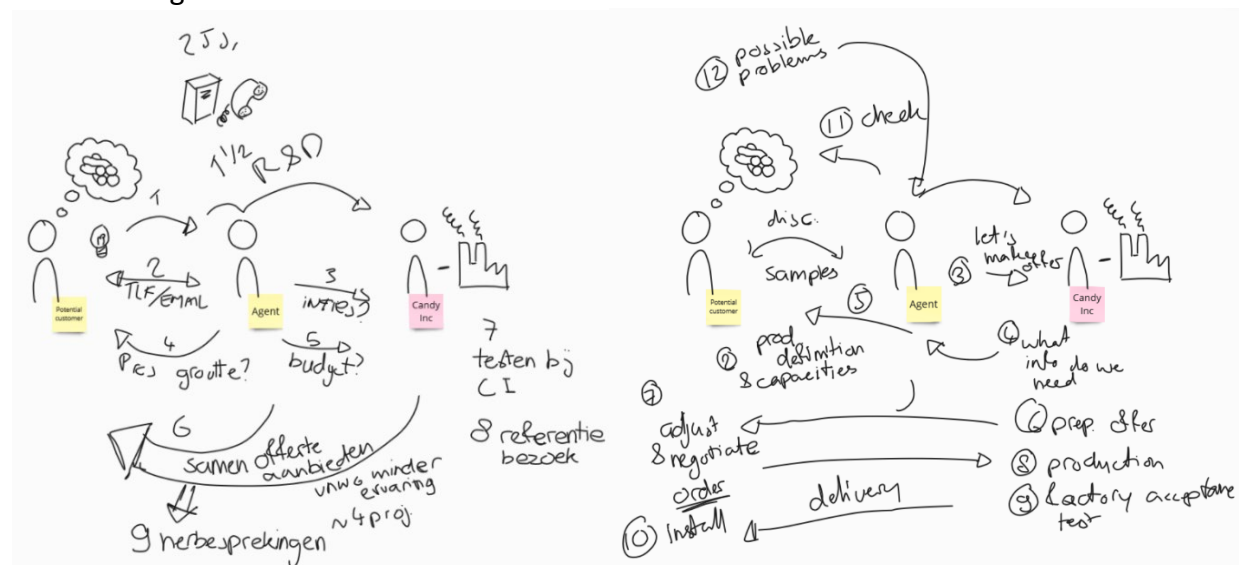 1 1/2 R&D
1
2
TLF/EMAIL
3
4
groutte?
5
budget?
Potential
customer
Agent
Candy
Inc
6
samen offerte
aanbieden
vnwg minder
ervaring
~4 proj.
7
testen bij
CI
8 referentie
bezoek
9 herbesprekingen
12 possible
problems
11 check
disc.
samples
3 let's
make offer
5
Potential
customer
Agent
Candy
Inc
2 prod
definition
& capacities
4 what
info do we
need
7
adjust
& negotiate
order
10 Install
delivery
6 prep. offer
8 production
9 factory acceptance
test